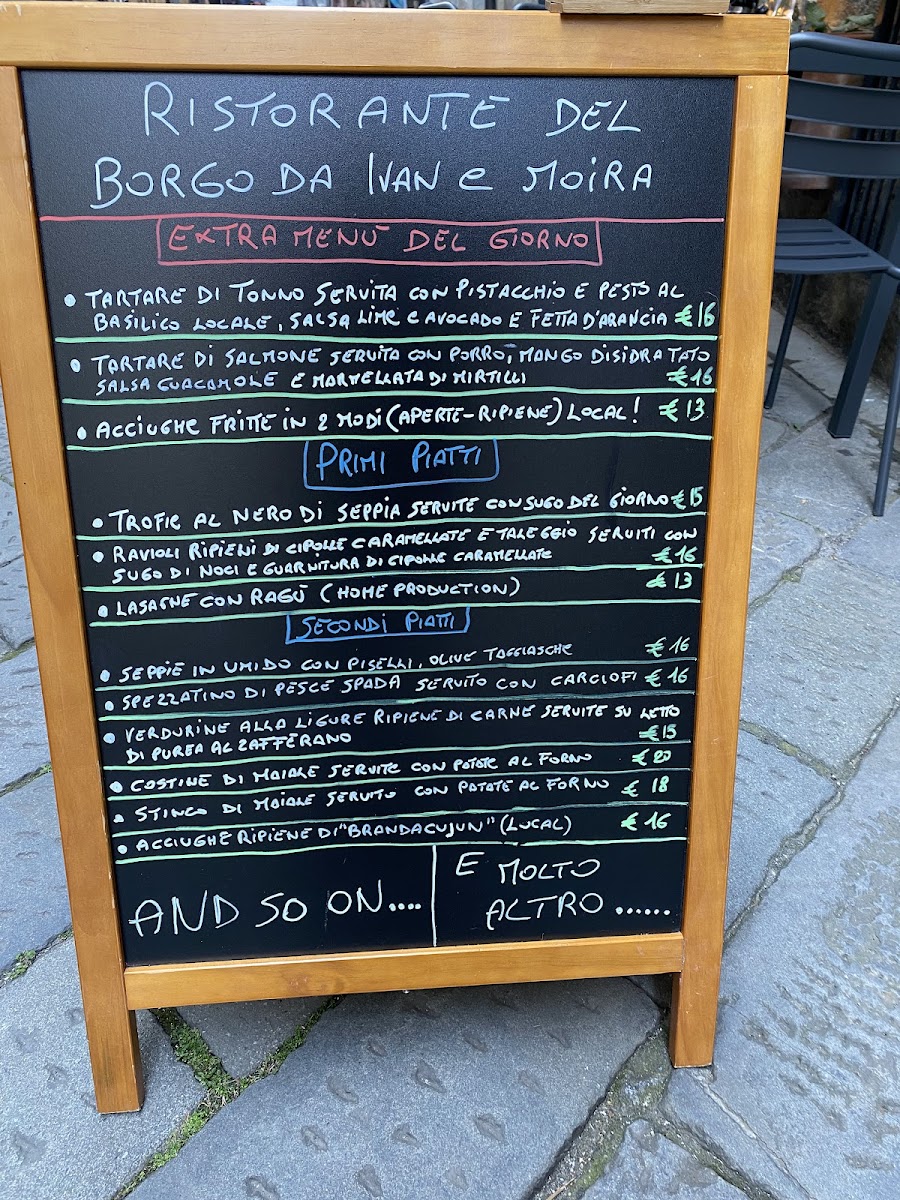 RISTORANTE DEL
BORGO DA IVAN e MOIRA
EXTRA MENÙ DEL GIORNO
• TARTARE DI TONNO SERVITA CON PISTACCHIO E PESTO AL
BASILICO LOCALE, SALSA LIME E AVOCADO E FETTA D'ARANCIA €16
• TARTARE DI SALMONE SERVITA CON PORRO, MANGO DISIDRATATO
SALSA GUACAMOLE E MARMELLATA DI MIRTILLI €16
• ACCIUGHE FRITTE IN 2 MODI (APERTE-RIPIENE) LOCAL! €13
PRIMI PIATTI
• TROFIE AL NERO DI SEPPIA SERVITE CON SUGO DEL GIORNO €15
• RAVIOLI RIPIENI DI CIPOLLE CARAMELLATE E TALEGGIO SERVITI CON
SUGO DI NOCI E GUARNITURA DI CIPOLLE CARAMELLATE €16
• LASAGNE CON RAGÙ (HOME PRODUCTION) €13
SECONDI PIATTI
• SEPPIE IN UMIDO CON PISELLI, OLIVE TAGGIASCHE €16
• SPEZZATINO DI PESCE SPADA SERVITO CON CARCIOFI €16
• VERDURINE ALLA LIGURE RIPIENE DI CARNE SERVITE SU LETTO
DI PUREA AL ZAFFERANO €15
• COSTINE DI MAIALE SERVITE CON PATATE AL FORNO €20
• STINCO DI MAIALE SERVITO CON PATATE AL FORNO €18
• ACCIUGHE RIPIENE DI "BRANDACUJUN" (LOCAL) €16
AND SO ON....
E MOLTO
ALTRO ......